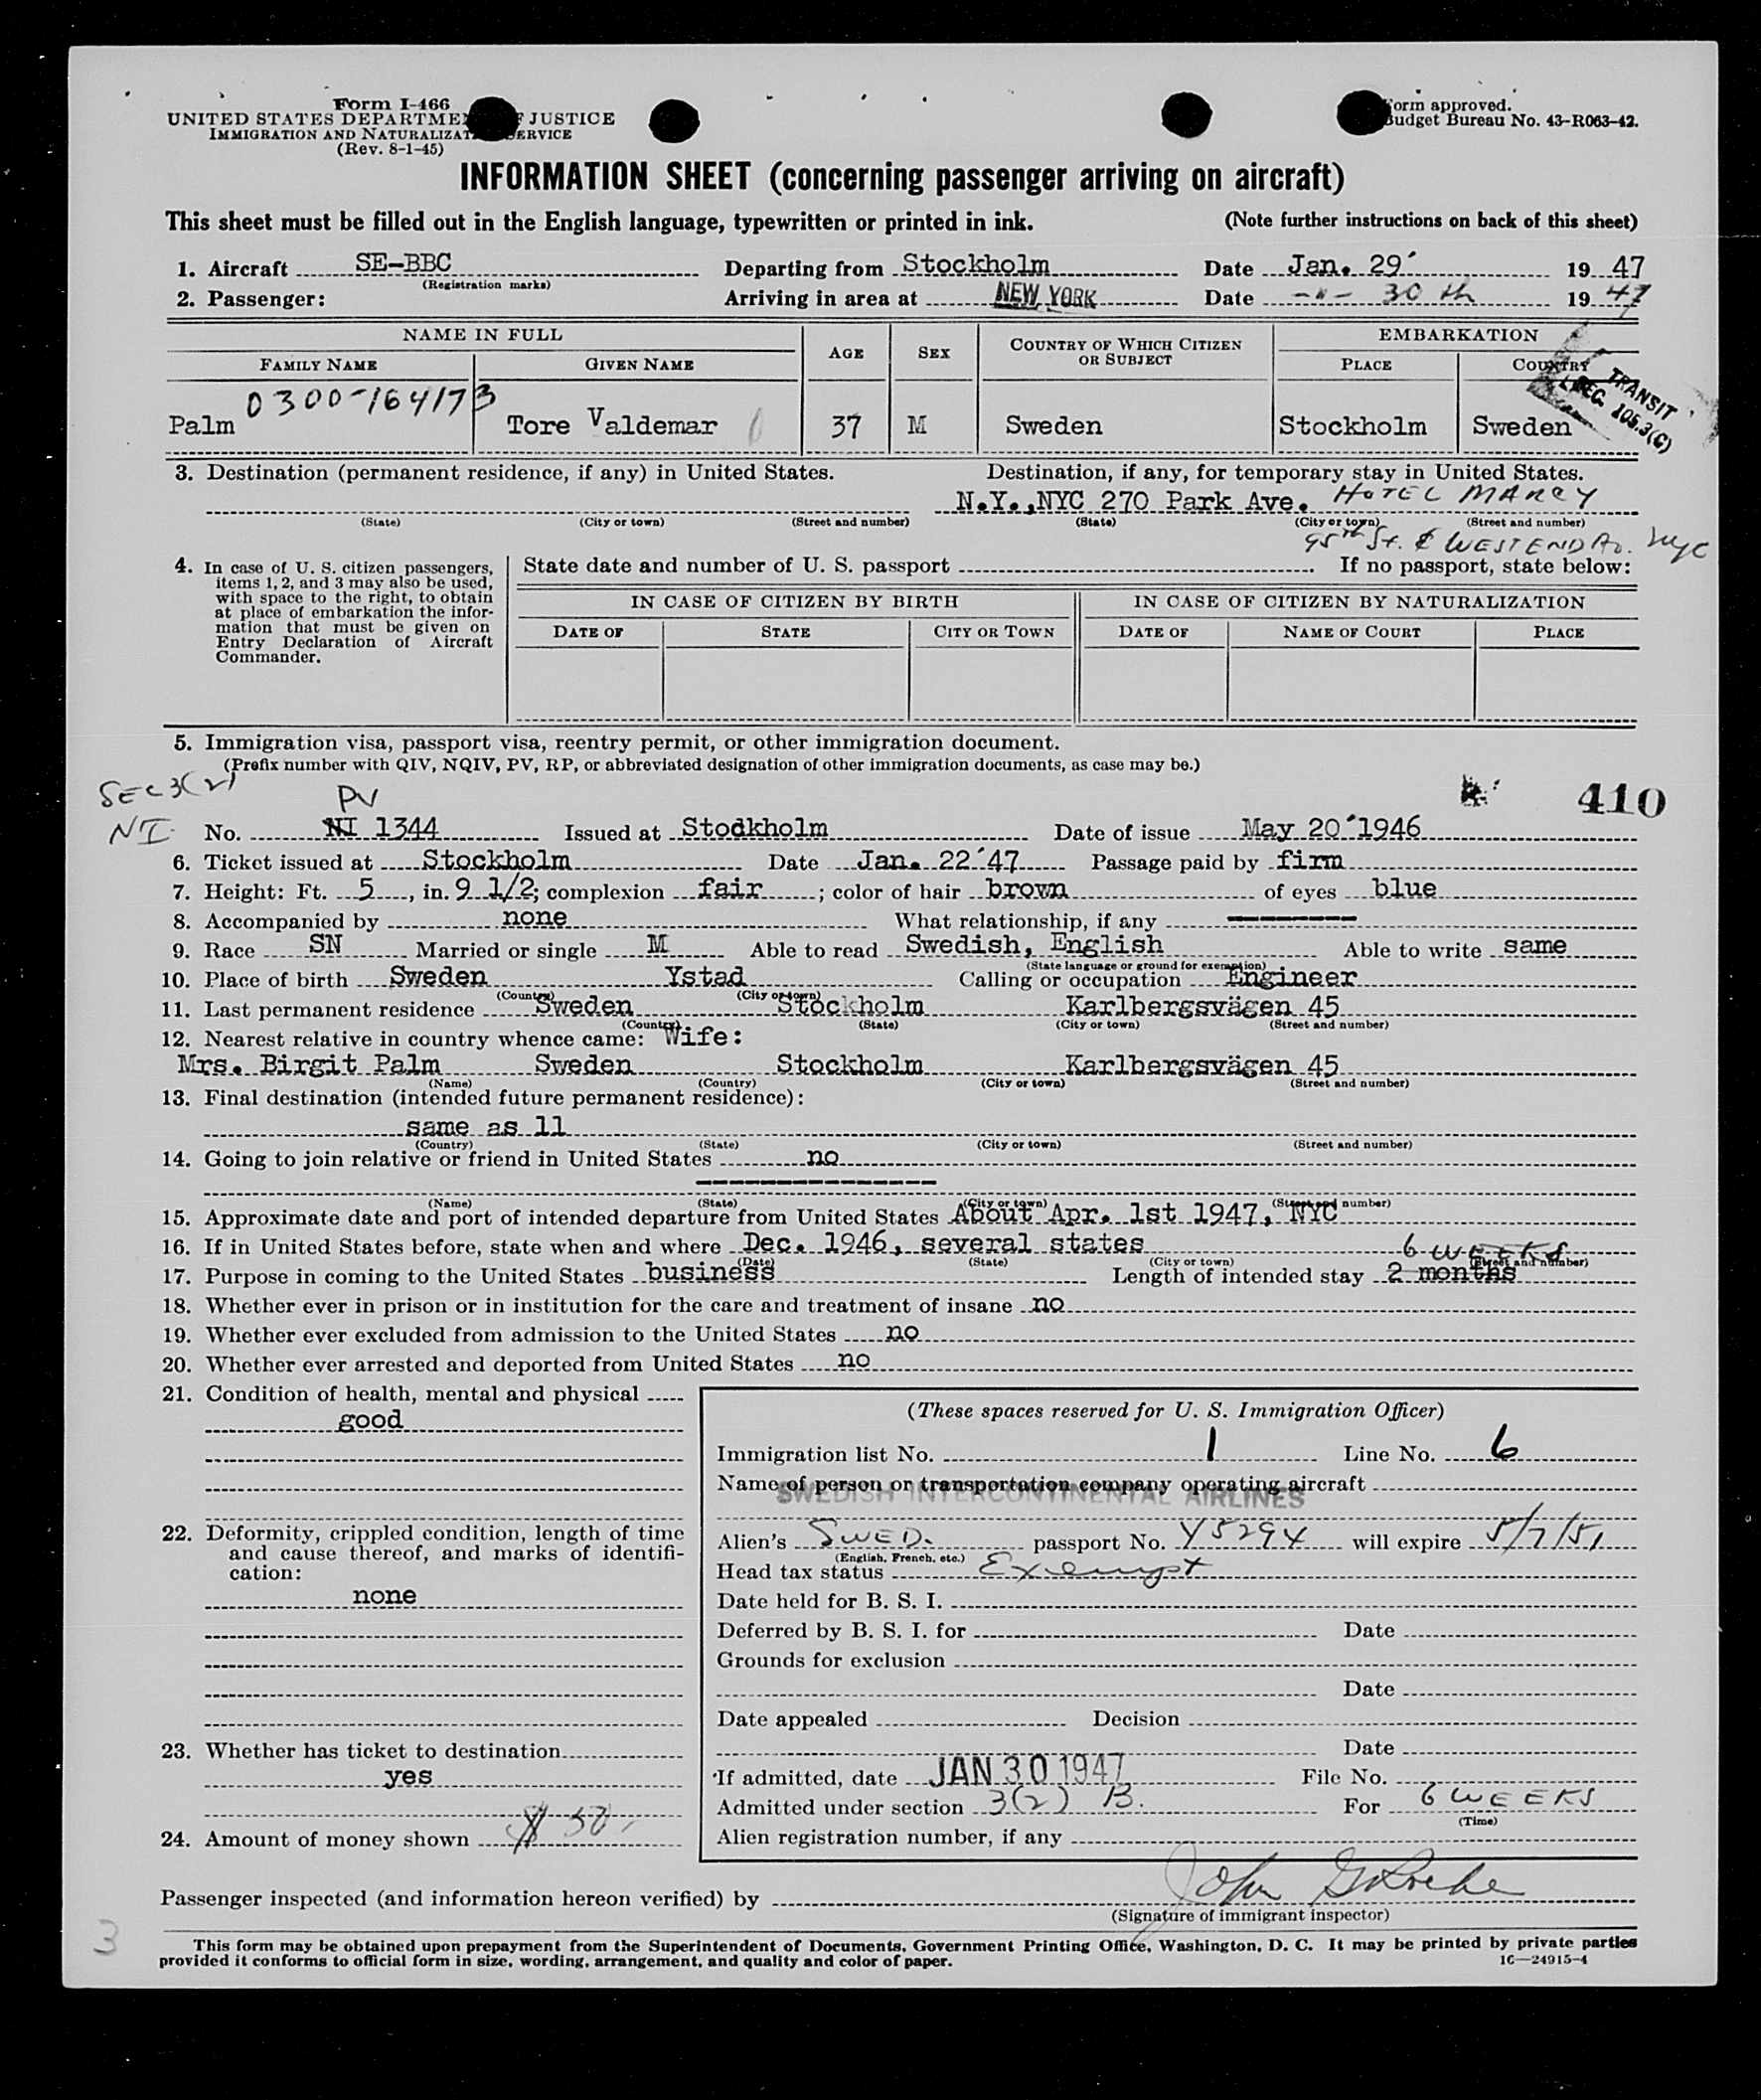 Form I-466
Form approved.
UNITED STATES DEPARTMENT OF JUSTICE
Budget Bureau No. 43-R063-42.
IMMIGRATION AND NATURALIZATION SERVICE
(Rev. 8-1-45)
INFORMATION SHEET (concerning passenger arriving on aircraft)
This sheet must be filled out in the English language, typewritten or printed in ink. (Note further instructions on back of this sheet)
1. Aircraft SE-BBC Departing from Stockholm Date Jan. 29' 1947
(Registration marks)
2. Passenger: Arriving in area at NEW YORK Date -"- 30 th 1947
NAME IN FULL AGE SEX COUNTRY OF WHICH CITIZEN OR SUBJECT EMBARKATION
FAMILY NAME GIVEN NAME PLACE COUNTRY
TRANSIT
REG. 105.3(C)
0300-164173
Palm Tore Valdemar 37 M Sweden Stockholm Sweden
3. Destination (permanent residence, if any) in United States. Destination, if any, for temporary stay in United States.
N.Y.,NYC 270 Park Ave. HOTEL MARCY
(State) (City or town) (Street and number) (State) (City or town) (Street and number)
95th St. & WESTEND Av. NYC
4. In case of U. S. citizen passengers, items 1, 2, and 3 may also be used, with space to the right, to obtain at place of embarkation the information that must be given on Entry Declaration of Aircraft Commander.
State date and number of U. S. passport If no passport, state below:
IN CASE OF CITIZEN BY BIRTH IN CASE OF CITIZEN BY NATURALIZATION
DATE OF STATE CITY OR TOWN DATE OF NAME OF COURT PLACE
5. Immigration visa, passport visa, reentry permit, or other immigration document.
(Prefix number with QIV, NQIV, PV, RP, or abbreviated designation of other immigration documents, as case may be.)
SEC 3(2)
NI
PV
410
No. NI 1344 Issued at Stodkholm Date of issue May 20'1946
6. Ticket issued at Stockholm Date Jan. 22'47 Passage paid by firm
7. Height: Ft. 5, in. 9 1/2; complexion fair; color of hair brown of eyes blue
8. Accompanied by none What relationship, if any ---------
9. Race SN Married or single M Able to read Swedish, English Able to write same
(State language or ground for exemption)
10. Place of birth Sweden Ystad Calling or occupation Engineer
(Country) (City or town)
11. Last permanent residence Sweden Stockholm Karlbergsvägen 45
(Country) (State) (City or town) (Street and number)
12. Nearest relative in country whence came: Wife:
Mrs. Birgit Palm Sweden Stockholm Karlbergsvägen 45
(Name) (Country) (City or town) (Street and number)
13. Final destination (intended future permanent residence):
same as 11
(Country) (State) (City or town) (Street and number)
14. Going to join relative or friend in United States no
(Name) (State) (City or town) (Street and number)
15. Approximate date and port of intended departure from United States About Apr. 1st 1947, NYC
16. If in United States before, state when and where Dec. 1946, several states
(Date) (State) (City or town) (Street and number)
6 WEEKS
17. Purpose in coming to the United States business Length of intended stay 2 months
18. Whether ever in prison or in institution for the care and treatment of insane no
19. Whether ever excluded from admission to the United States no
20. Whether ever arrested and deported from United States no
21. Condition of health, mental and physical
good
22. Deformity, crippled condition, length of time and cause thereof, and marks of identification:
none
23. Whether has ticket to destination
yes
24. Amount of money shown $ 50
(These spaces reserved for U. S. Immigration Officer)
Immigration list No. 1 Line No. 6
Name of person or transportation company operating aircraft
SWEDISH INTERCONTINENTAL AIRLINES
Alien's SWED. passport No. Y5294 will expire 5/7/51
(English, French, etc.)
Head tax status Exempt
Date held for B. S. I.
Deferred by B. S. I. for Date
Grounds for exclusion
Date
Date appealed Decision
Date
If admitted, date JAN 30 1947 File No.
Admitted under section 3(2) B. For 6 WEEKS
(Time)
Alien registration number, if any
Passenger inspected (and information hereon verified) by John
(Signature of immigrant inspector)
3
This form may be obtained upon prepayment from the Superintendent of Documents, Government Printing Office, Washington, D. C. It may be printed by private parties
provided it conforms to official form in size, wording, arrangement, and quality and color of paper. 16—24915-4